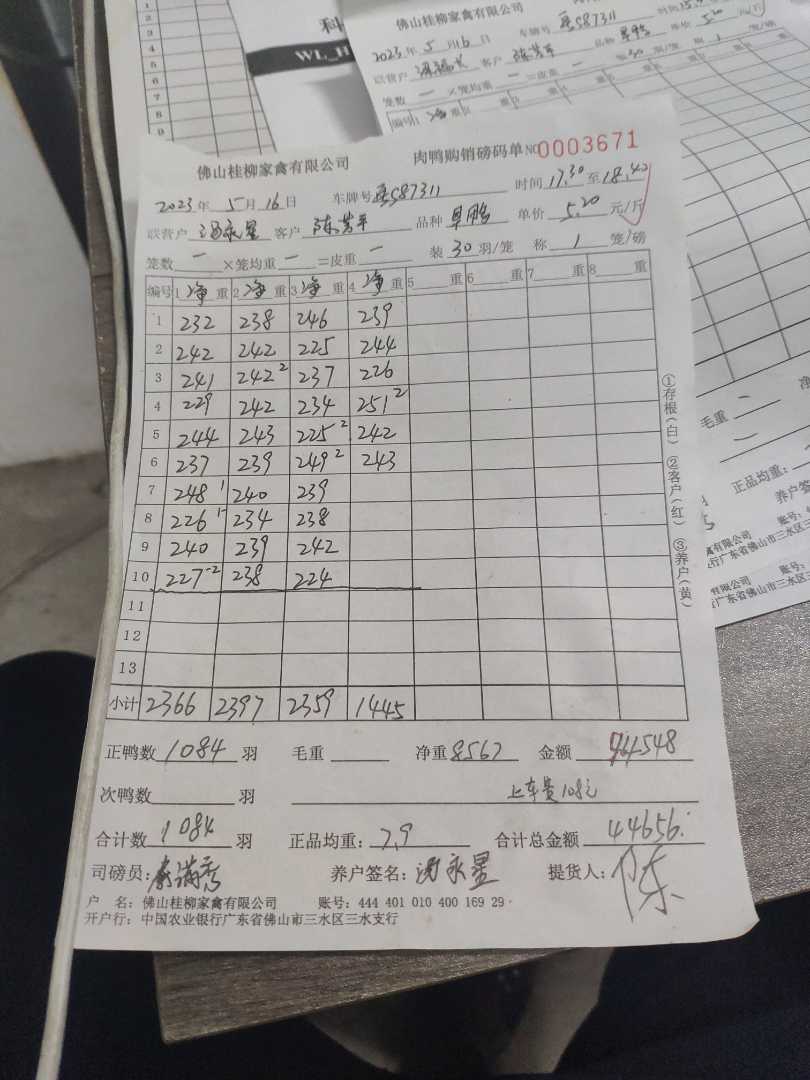 科
WL_H
佛山桂柳家禽有限公司
2023年 5月 16日
佛山桂柳家禽有限公司 肉鸭购销磅码单 NO 0003671
2023年 5月 16日 车牌号 粤S87311 时间 17.30 至 18.40
联营户 汤永星 客户 陈芳平 品种 单价 5.20 元/斤
笼数 一 ×笼均重 一 =皮重 一 装 30 羽/笼 称 1 笼/磅
编号 1 净 重 2 净 重 3 净 重 4 净 重 5 重 6 重 7 重 8 重
1 232 238 246 239
2 242 242 225 244
3 241 242 2 237 226
4 229 242 234 251 2
5 244 243 225 2 242
6 237 239 249 2 243
7 248 1 240 239
8 226 1- 234 238
9 240 239 242
10 227 -2 238 224
11
12
13
小计 2366 2397 2359 1445
正鸭数 1084 羽 毛重 净重 8567 金额 44548
次鸭数 羽 上车费108元
合计数 1084 羽 正品均重: 7.9 合计总金额 44656.
司磅员: 养户签名: 汤永星 提货人: 陈
户 名: 佛山桂柳家禽有限公司 账号: 444 401 010 400 169 29
开户行: 中国农业银行广东省佛山市三水区三水支行
①存根(白) ②客户(红) ③养户(黄)
毛重
正品均重:
养户签